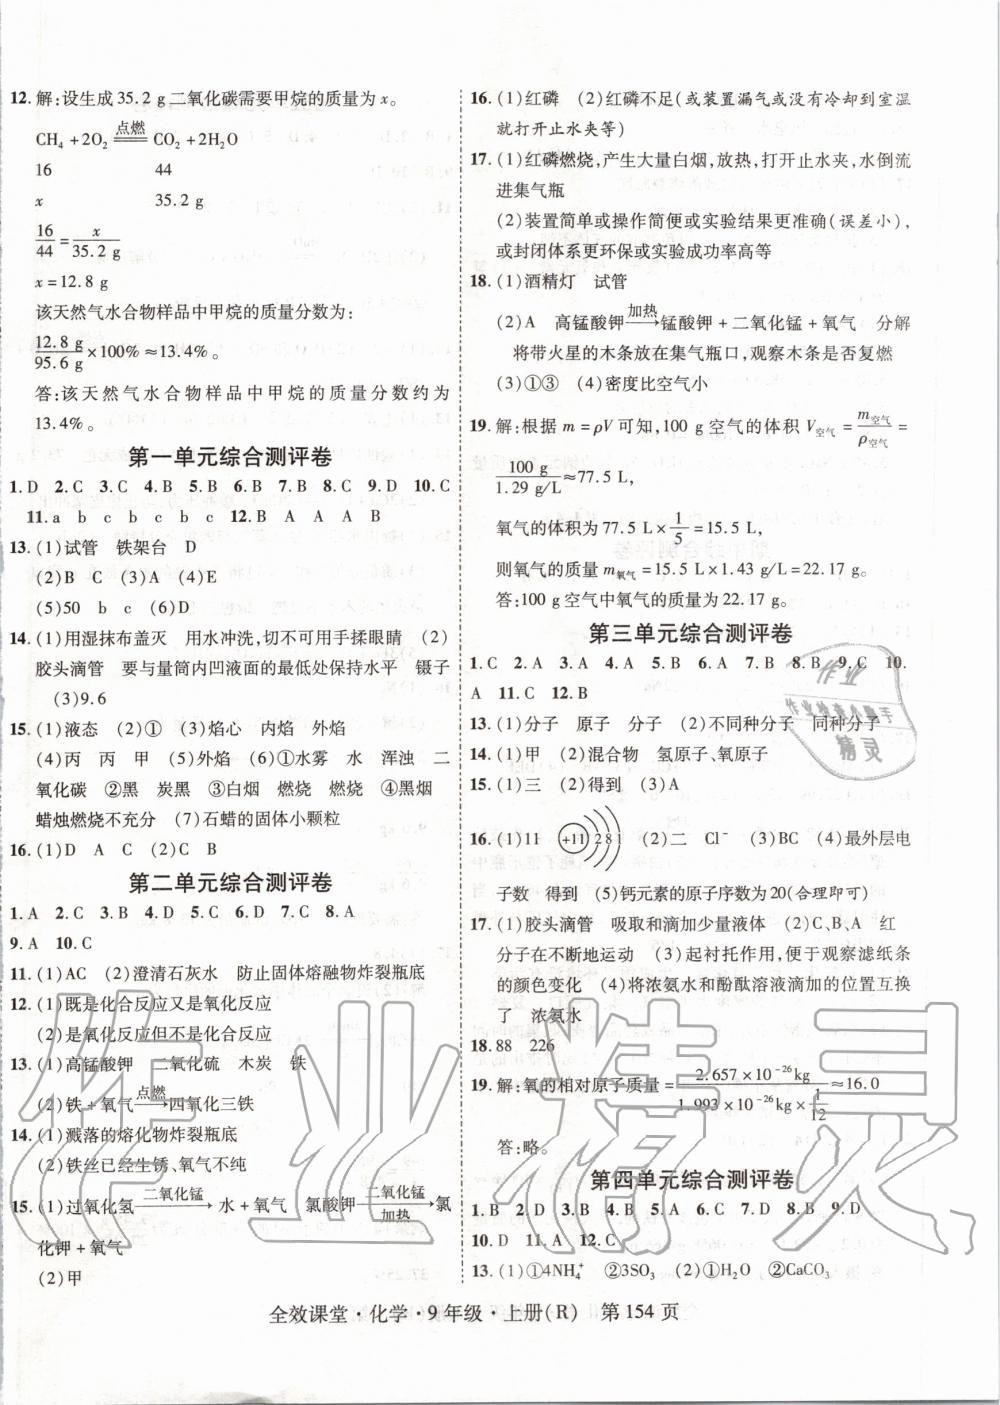 12. 解:设生成 35.2 g 二氧化碳需要甲烷的质量为 x。
CH₄ + 2O₂ =点燃= CO₂ + 2H₂O
16 44
x 35.2 g
16/44 = x/35.2 g
x = 12.8 g
该天然气水合物样品中甲烷的质量分数为:
12.8 g/95.6 g × 100% ≈ 13.4%。
答:该天然气水合物样品中甲烷的质量分数约为
13.4%。
第一单元综合测评卷
1. D 2. C 3. C 4. B 5. B 6. B 7. B 8. C 9. D 10. C
11. a b c b c b c 12. B A A A B
13. (1)试管 铁架台 D
(2)B C (3)A (4)E
(5)50 b c (6)D
14. (1)用湿抹布盖灭 用水冲洗,切不可用手揉眼睛 (2)
胶头滴管 要与量筒内凹液面的最低处保持水平 镊子
(3)9.6
15. (1)液态 (2)① (3)焰心 内焰 外焰
(4)丙 丙 甲 (5)外焰 (6)①水雾 水 浑浊 二
氧化碳 ②黑 炭黑 ③白烟 燃烧 燃烧 ④黑烟
蜡烛燃烧不充分 (7)石蜡的固体小颗粒
16. (1)D A C (2)C B
第二单元综合测评卷
1. A 2. C 3. B 4. D 5. C 6. D 7. C 8. A
9. A 10. C
11. (1)AC (2)澄清石灰水 防止固体熔融物炸裂瓶底
12. (1)既是化合反应又是氧化反应
(2)是氧化反应但不是化合反应
13. (1)高锰酸钾 二氧化硫 木炭 铁
(2)铁 + 氧气 —点燃→ 四氧化三铁
14. (1)溅落的熔化物炸裂瓶底
(2)铁丝已经生锈、氧气不纯
15. (1)过氧化氢 —二氧化锰→ 水 + 氧气 氯酸钾 —二氧化锰/加热→ 氯
化钾 + 氧气
(2)甲
16. (1)红磷 (2)红磷不足(或装置漏气或没有冷却到室温
就打开止水夹等)
17. (1)红磷燃烧,产生大量白烟,放热,打开止水夹,水倒流
进集气瓶
(2)装置简单或操作简便或实验结果更准确(误差小),
或封闭体系更环保或实验成功率高等
18. (1)酒精灯 试管
(2)A 高锰酸钾 —加热→ 锰酸钾 + 二氧化锰 + 氧气 分解
将带火星的木条放在集气瓶口,观察木条是否复燃
(3)①③ (4)密度比空气小
19. 解:根据 m = ρV 可知,100 g 空气的体积 V空气 = m空气/ρ空气 =
100 g/1.29 g/L ≈ 77.5 L,
氧气的体积为 77.5 L × 1/5 = 15.5 L,
则氧气的质量 m氧气 = 15.5 L × 1.43 g/L = 22.17 g。
答:100 g 空气中氧气的质量为 22.17 g。
第三单元综合测评卷
1. C 2. A 3. A 4. A 5. B 6. A 7. B 8. B 9. C 10.
A 11. C 12. B
13. (1)分子 原子 分子 (2)不同种分子 同种分子
14. (1)甲 (2)混合物 氢原子、氧原子
15. (1)三 (2)得到 (3)A
16. (1)11 +11 2 8 1 (2)二 Cl⁻ (3)BC (4)最外层电
子数 得到 (5)钙元素的原子序数为 20(合理即可)
17. (1)胶头滴管 吸取和滴加少量液体 (2)C、B、A 红
分子在不断地运动 (3)起衬托作用,便于观察滤纸条
的颜色变化 (4)将浓氨水和酚酞溶液滴加的位置互换
了 浓氨水
18. 88 226
19. 解:氧的相对原子质量 = 2.657 × 10⁻²⁶ kg/1.993 × 10⁻²⁶ kg × 1/12 ≈ 16.0
答:略。
第四单元综合测评卷
1. B 2. D 3. B 4. B 5. A 6. C 7. D 8. B 9. D
10. D 11. A 12. C
13. (1)①4NH₄⁺ ②3SO₃ (2)①H₂ ②CaCO₃
全效课堂·化学·9 年级·上册(R) 第 154 页
作业
作业检查小助手
精灵
作业精灵